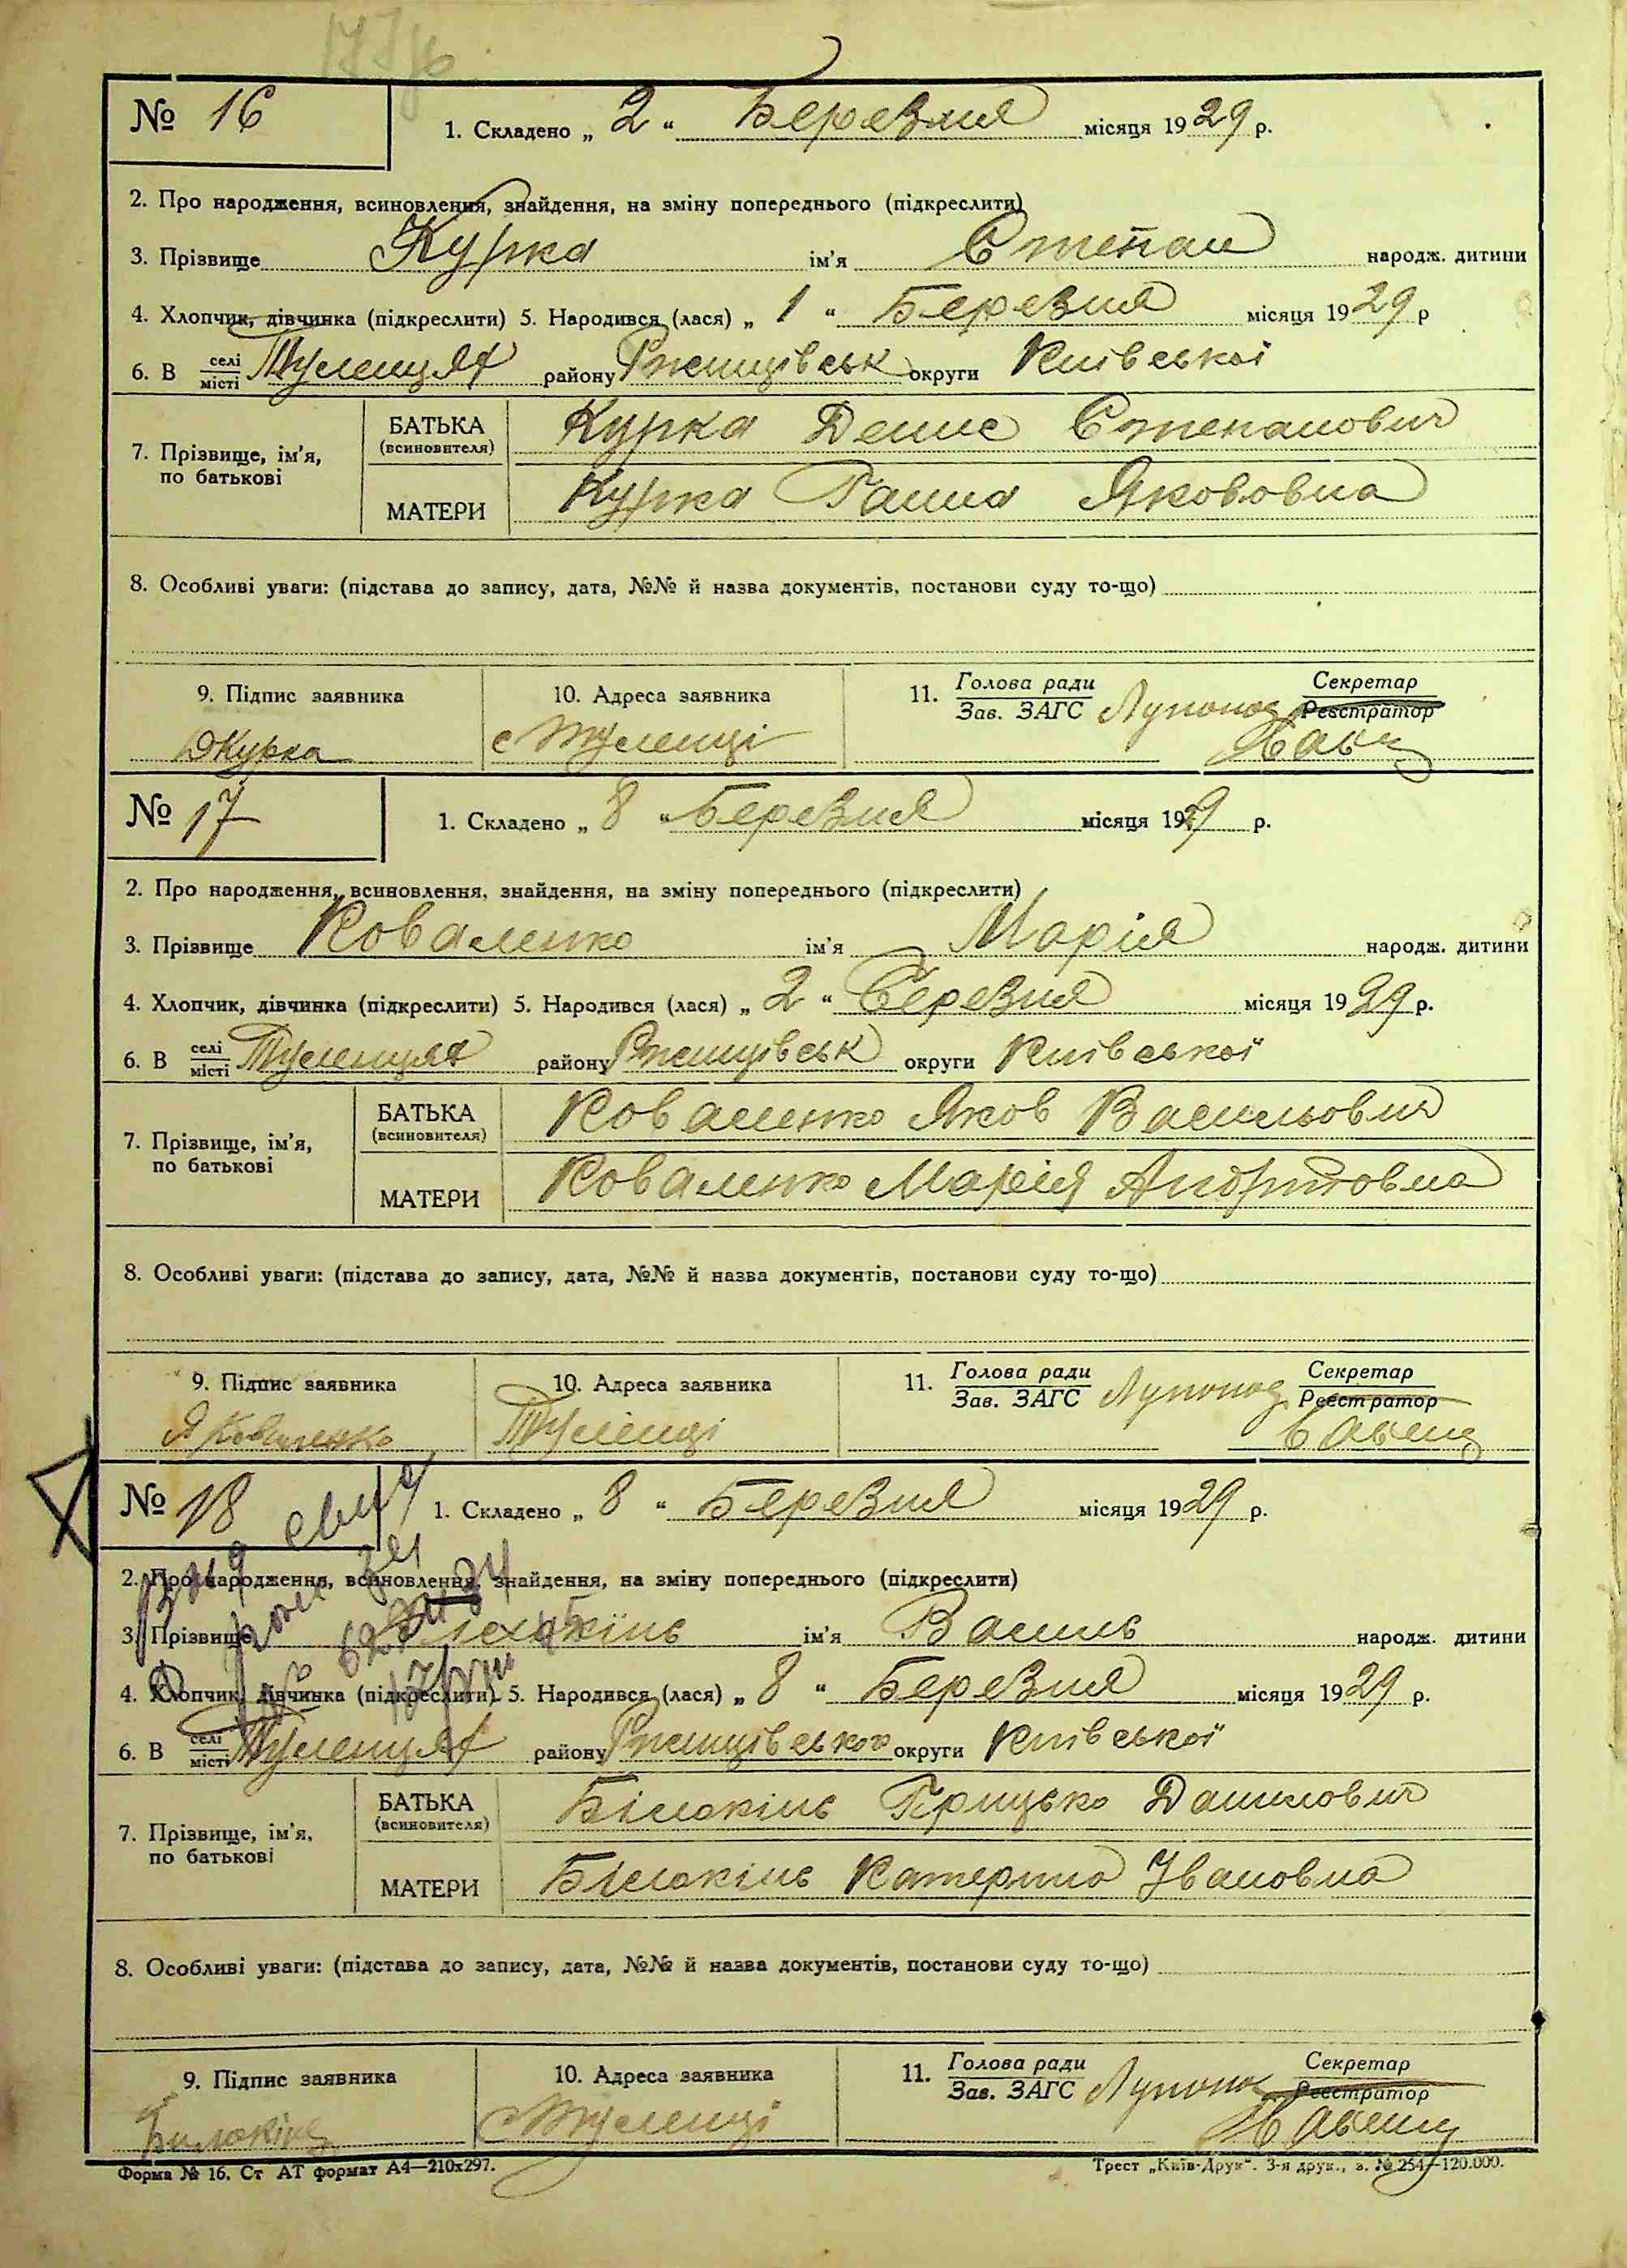 № 16
1. Складено „ 2 “ Березня місяця 1929 р.
2. Про народження, всиновлення, знайдення, на зміну попереднього (підкреслити)
3. Прізвище Курка ім'я Степан народж. дитини
4. Хлопчик, дівчинка (підкреслити) 5. Народився (лася) „ 1 “ Березня місяця 1929 р
6. В селі/місті Туленцях району Ржищівськ округи Київської
7. Прізвище, ім'я, по батькові
БАТЬКА (всиновителя) Курка Денис Степанович
МАТЕРИ Курка Ганна Якововна
8. Особливі уваги: (підстава до запису, дата, №№ й назва документів, постанови суду то-що)
9. Підпис заявника 10. Адреса заявника 11. Голова ради/Зав. ЗАГС Секретар/Реєстратор
ДКурка с Туленці
№ 17
1. Складено „ 8 “ Березня місяця 1929 р.
2. Про народження, всиновлення, знайдення, на зміну попереднього (підкреслити)
3. Прізвище Коваленко ім'я Марія народж. дитини
4. Хлопчик, дівчинка (підкреслити) 5. Народився (лася) „ 2 “ Березня місяця 1929 р.
6. В селі/місті Туленцях району Ржищівськ округи Київської
7. Прізвище, ім'я, по батькові
БАТЬКА (всиновителя) Коваленко Яков Васильович
МАТЕРИ Коваленко Марія
8. Особливі уваги: (підстава до запису, дата, №№ й назва документів, постанови суду то-що)
9. Підпис заявника 10. Адреса заявника 11. Голова ради/Зав. ЗАГС Секретар/Реєстратор
Я Коваленко Тулінці
№ 18
1. Складено „ 8 “ Березня місяця 1929 р.
2. Про народження, всиновлення, знайдення, на зміну попереднього (підкреслити)
3. Прізвище ім'я Василь народж. дитини
4. Хлопчик, дівчинка (підкреслити) 5. Народився (лася) „ 8 “ Березня місяця 1929 р.
6. В селі/місті Туленцях району Ржищівського округи Київської
7. Прізвище, ім'я, по батькові
БАТЬКА (всиновителя) Білокінь Грицько Данилович
МАТЕРИ Білокінь Катерина Івановна
8. Особливі уваги: (підстава до запису, дата, №№ й назва документів, постанови суду то-що)
9. Підпис заявника 10. Адреса заявника 11. Голова ради/Зав. ЗАГС Секретар/Реєстратор
с Туленці
Форма № 16. Ст АТ формат А4—210х297. Трест „Київ-Друк“. 3-я друк., з. № 254—120.000.